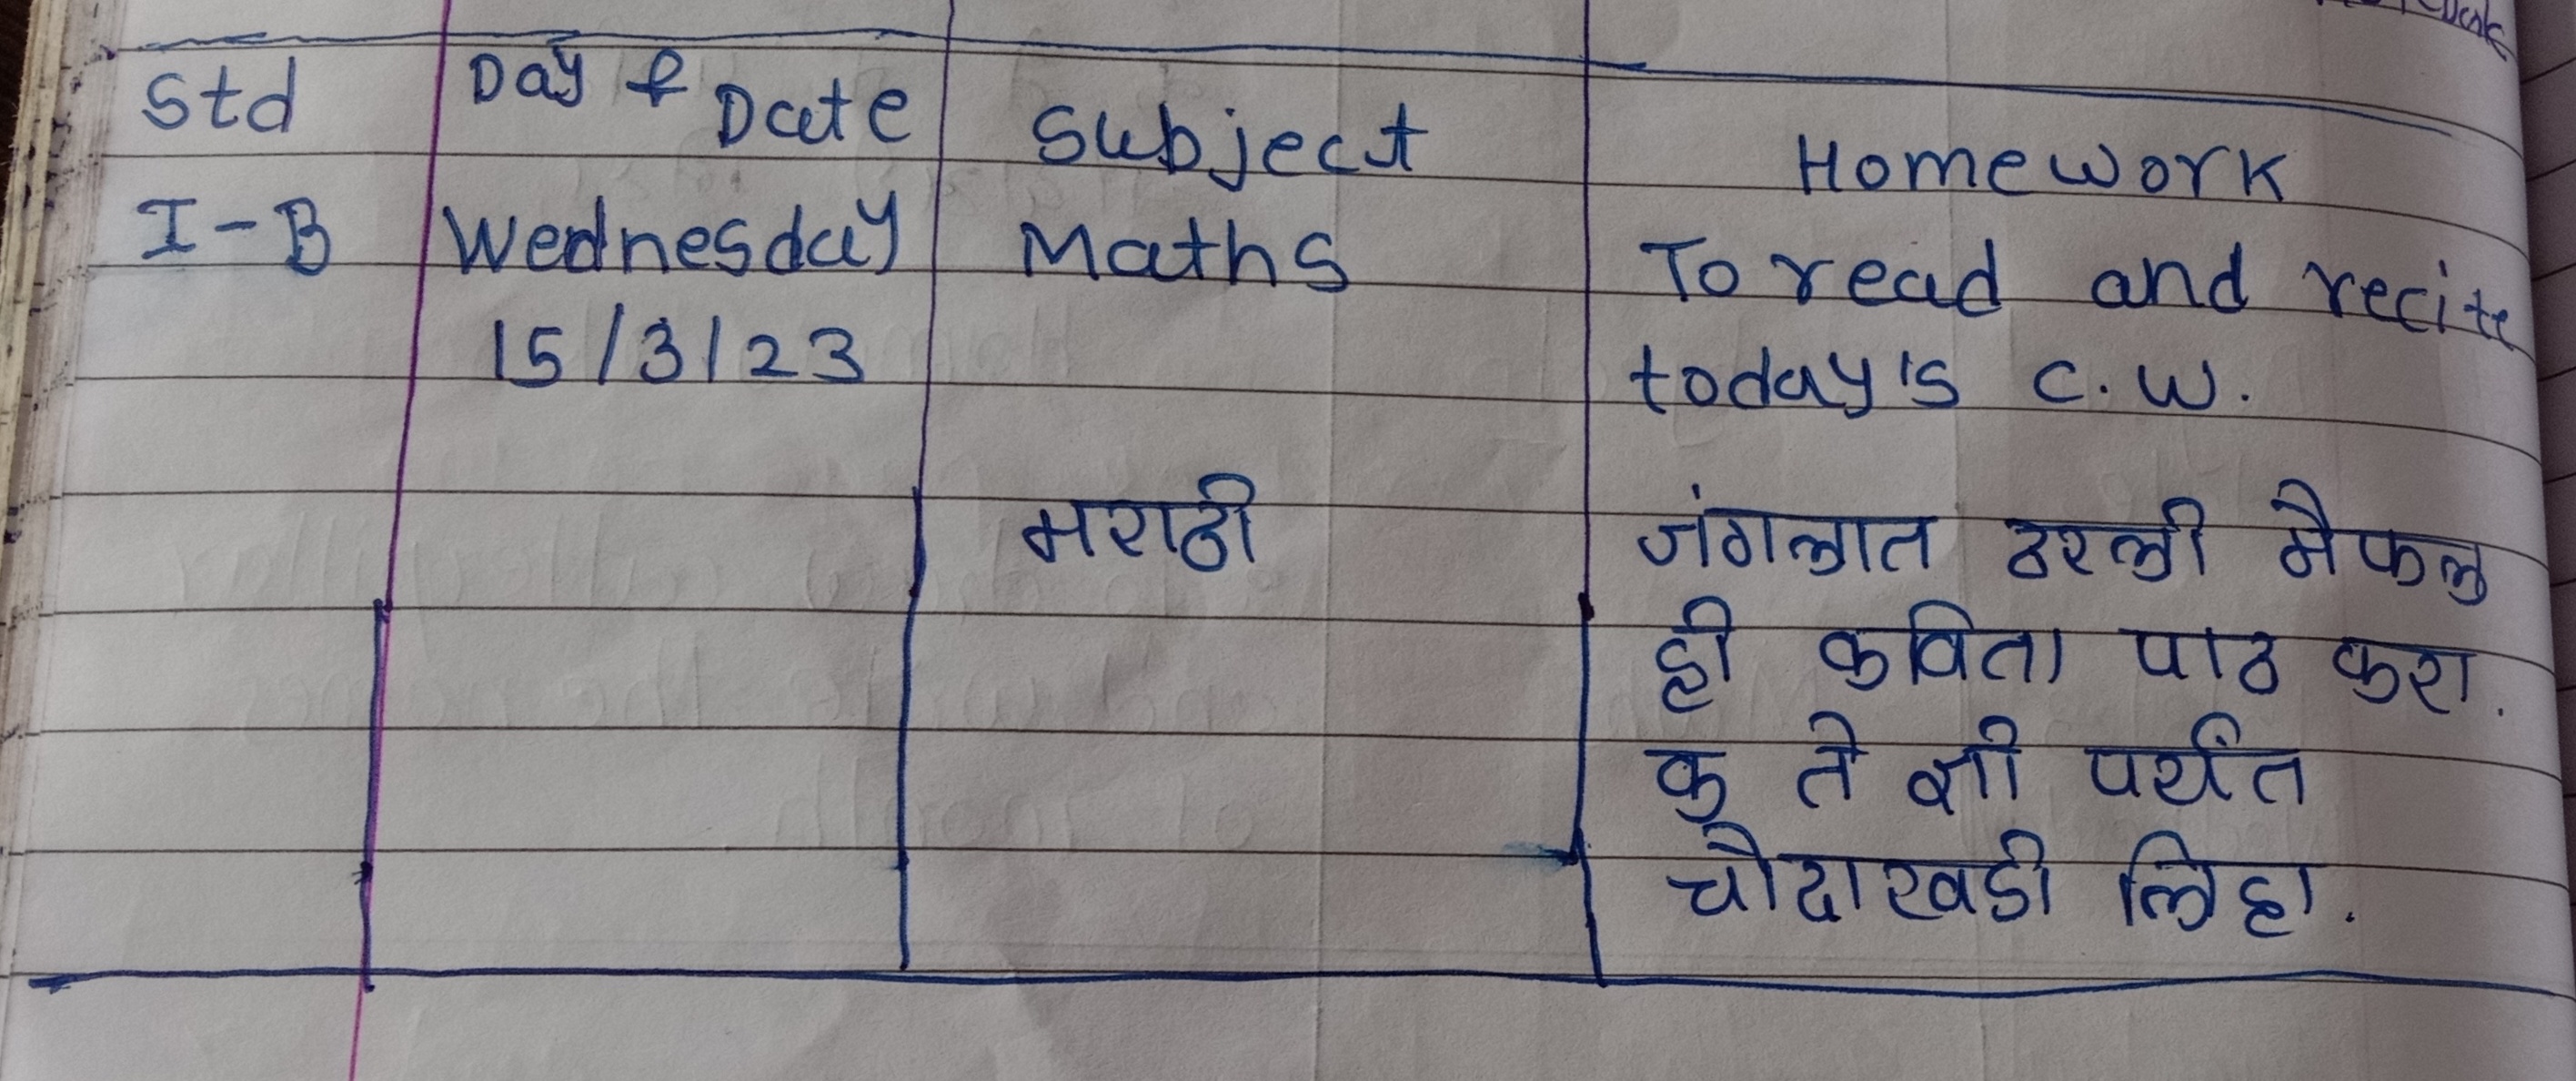 Std Day & Date Subject Homework
I-B Wednesday Maths To read and recite
15/3/23 today's C.W.
मराठी जंगलात ठरली मैफल
ही कविता पाठ करा.
क ते ज्ञ पर्यंत
चौदाखडी लिहा.